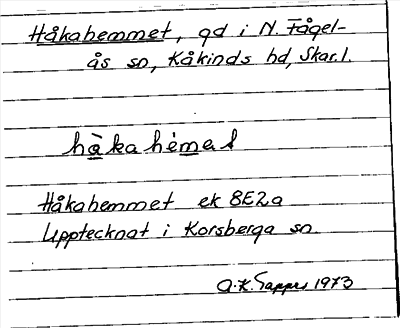 Håkahemmet, gd i N. Fågel-
ås sn, Kåkinds hd, Skar.l.
hå̀kahèmet
Håkahemmet ek 8E2a
Upptecknat i Korsberga sn
A.K. 1973